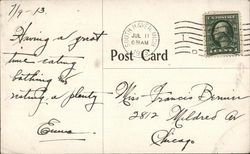 7/9-13
Having a great
time eating
bathing &
eating a plenty
Emma
JUL 11
6 30 AM
Post Card
Miss Francis
2812 Mildred Av
Chicago